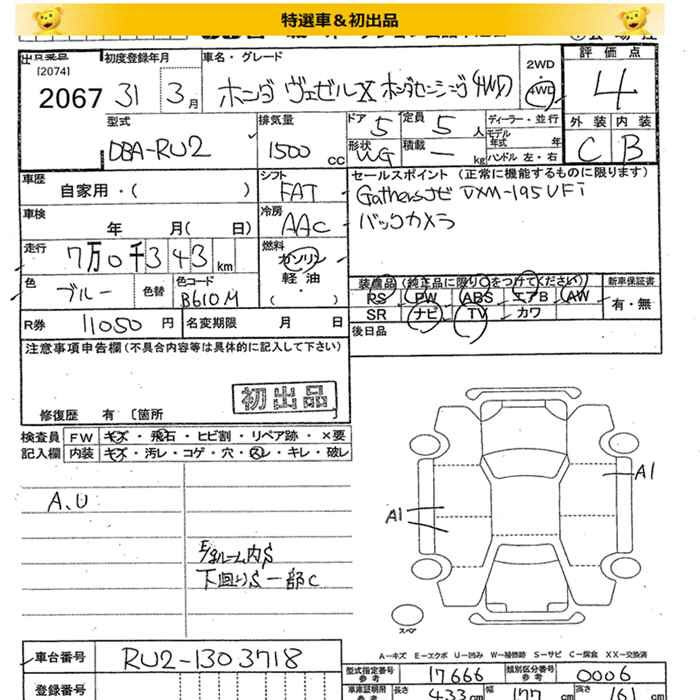 特選車＆初出品
出品番号
[2074]
2067
初度登録年月
31 3月
車名・グレード
ホンダ ヴェゼル X ホンダセンシング 4WD
2WD
・
4WD
評価点
4
型式
DBA-RU2
排気量
1500 cc
ドア 5 定員 5 人
形状 WG 積載 — kg
ディーラー・並行
モデル年式 年
ハンドル 左・右
外装 内装
C B
車歴
自家用・( )
シフト
FAT
セールスポイント (正常に機能するものに限ります)
Gathersナビ VXM-195VFi
バックカメラ
車検
年 月( 日)
冷房
AAC
走行
7万0千343 km
燃料
ガソリン
軽油
( ・ )
色
ブルー
色替
色コード
B610M
装備品 (純正品に限り○をつけてください)
PS PW ABS エアB AW
SR ナビ TV カワ
新車保証書
有・無
R券 11050 円
名変期限 月 日
後日品
注意事項申告欄 (不具合内容等は具体的に記入して下さい)
初出品
修復歴 有 〔箇所 〕
検査員 FW キズ・飛石・ヒビ割・リペア跡・×要
記入欄 内装 キズ・汚レ・コゲ・穴・スレ・キレ・破レ
A、U
E/gルーム内S
下回りS 一部C
A1
A1
スペア
A－キズ E－エクボ U－凹み W－補修跡 S－サビ C－腐食 XX－交換済
車台番号 RU2-1303718
登録番号
型式指定番号 参考 17666
類別区分番号 参考 0006
車庫証明用 参考 長さ 433 cm 幅 177 cm 高さ 161 cm